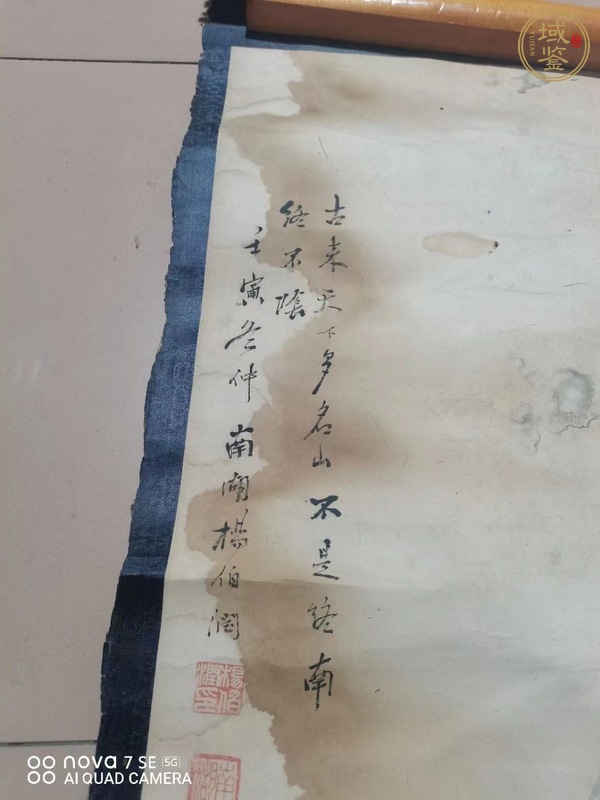 古来天下多名山不是终南
终不隂
壬寅冬仲南湖楊伯潤
楊伯
潤印
南
湖
域鉴
YUJIAN
nova 7 SE 5G
AI QUAD CAMERA